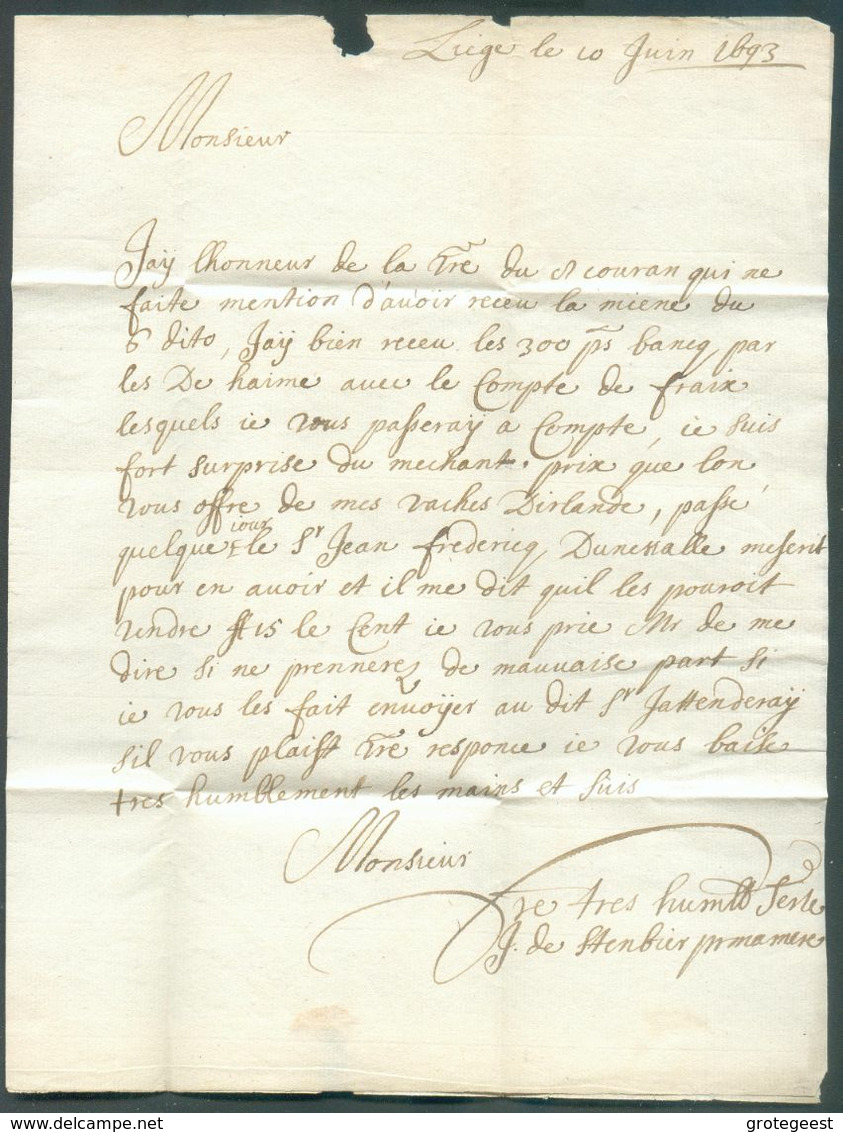 Liege le 10 Juin 1693
Monsieur
Jaÿ lhonneur de la vre du 8 couran qui ne
faite mention d'avoir receu la miene du
6 dito, Jaÿ bien receu les 300 ps bancq, par
les De haime avec le Compte de fraix
lesquels ie vous passeray a Compte, ie suis
fort surprise du mechant prix que lon
vous offre de mes vaches Dirlande, passé
quelque iour le Sr Jean frédericq mescrit
pour en avoir et il me dit quil les pouroit
vendre 15 le Cent ie vous prie Mr de me
dire si ne prennerez de mauvaise part si
ie vous les fait envoÿer au dit Sr Jattenderaÿ
sil vous plaist vre responce ie vous baise
tres humblement les mains et suis
Monsieur
vre tres humbl serte
J. de Stenbier pr ma mere
www.delcampe.net
grotegeest